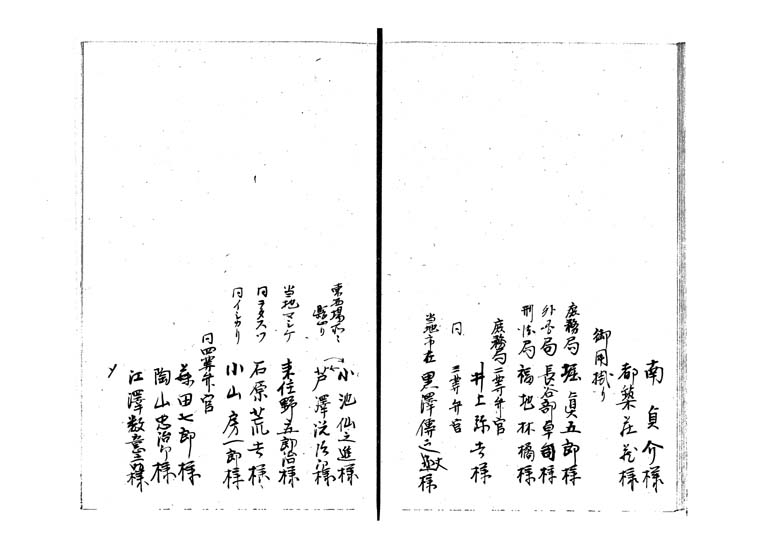 南貞介様
都築荘蔵様
御用掛り
庶務局 堀貞五郎様
外務局 長谷部卓爾様
刑法局 福地林橘様
庶務局二等弁官
井上弥吉様
同 三等弁官
当地市在 黒澤傳之丞様
小池仙之進様
芦澤浣治郎様
当地マシケ 来住野五郎治様
同ヨタスツ 石原荒吉様
同イシカリ 小山房一郎様
同四等弁官
森田七郎様
陶山忠治様
江澤数章様